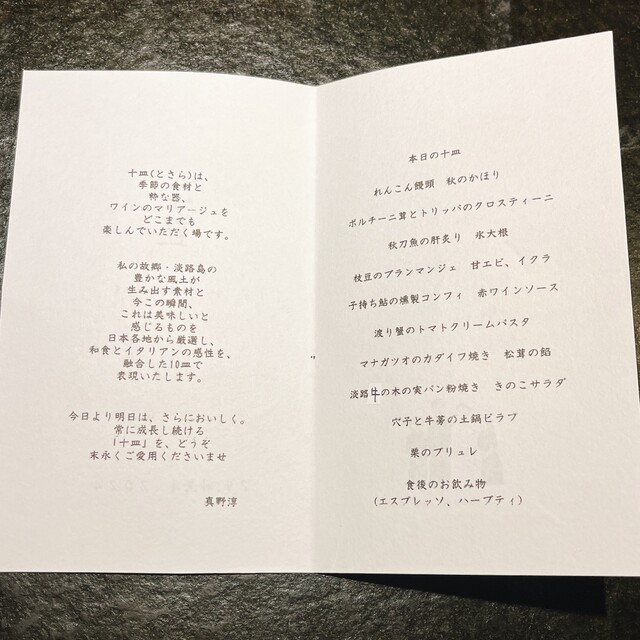 十皿(とさら)は、
季節の食材と
粋な器、
ワインのマリアージュを
どこまでも
楽しんでいただく場です。
私の故郷・淡路島の
豊かな風土が
生み出す素材と
今この瞬間、
これは美味しいと
感じるものを
日本各地から厳選し、
和食とイタリアンの感性を、
融合した10皿で
表現いたします。
今日より明日は、さらにおいしく。
常に成長し続ける
「十皿」を、どうぞ
末永くご愛用くださいませ
真野淳
本日の十皿
れんこん饅頭 秋のかほり
ポルチーニ茸とトリッパのクロスティーニ
秋刀魚の肝炙り 氷大根
枝豆のブランマンジェ 甘エビ、イクラ
子持ち鮎の燻製コンフィ 赤ワインソース
渡り蟹のトマトクリームパスタ
マナガツオのカダイフ焼き 松茸の餡
淡路牛の木の実パン粉焼き きのこサラダ
穴子と牛蒡の土鍋ピラフ
栗のブリュレ
食後のお飲み物
(エスプレッソ、ハーブティ)